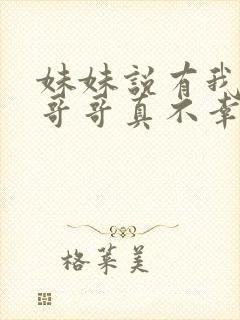 妹妹説有我
哥哥真不幸
格萊美